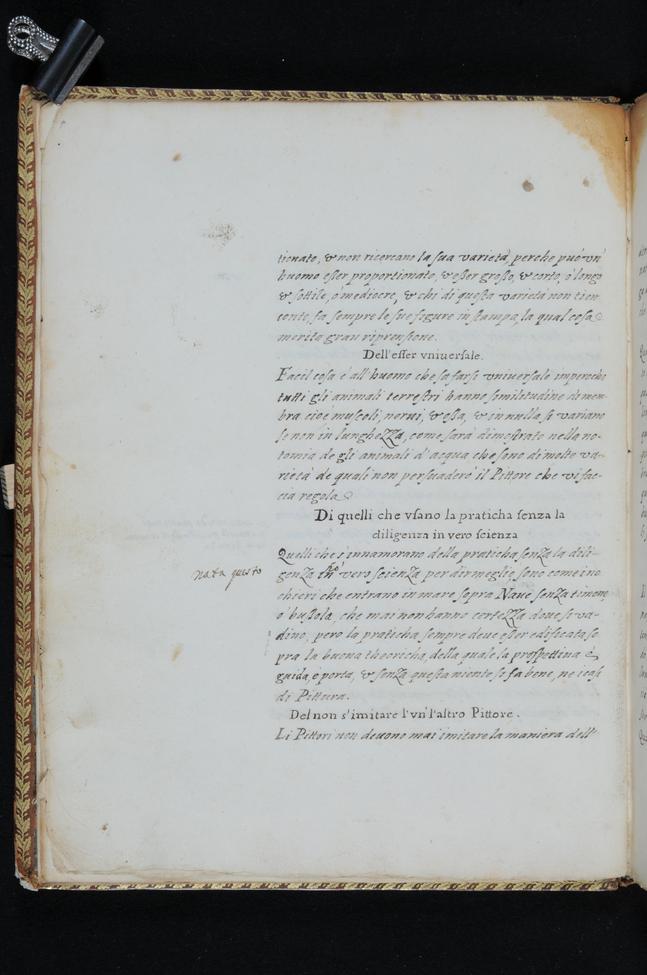 tionato, & non ricercano la sua varietà, perche può un'
huomo esser proportionato, & esser grosso, & corto, ò longo
& sottile, ò mediocre, & chi di questa varietà non tien
conto, fa sempre le sue figure in stampa, la qual cosa
merita gran riprensione.
Dell'esser vniuersale.
Facil cosa è all'huomo che sa farsi vniuersale imperoche
tutti gli animali terrestri hanno similitudine di mem
bra cioè muscoli, nerui, & ossa, & in nulla si variano
se non in lunghezza, come sarà dimostrato nella no-
tomia de gli animali d'acqua che sono di molte va-
rietà de quali non persuaderò il Pittore che vi fac-
cia regola
Di quelli che vsano la praticha senza la
diligenza in vero scienza
Quelli che s'innamorano della praticha senza la dili-
nota questo
genza vero scienza per dir meglio sono come i no
chieri che entrano in mare sopra Naue senza timone,
ò bussola, che mai non hanno certezza doue si va-
dino, pero la praticha sempre deue esser edificata so
pra la buona theoricha, della quale la prospettiua è
guida, e porta, & senza questa niente si fa bene, ne i casi
di Pittura.
Del non s'imitare l'vn l'altro Pittore.
Li Pittori non deuono mai imitare la maniera dell'